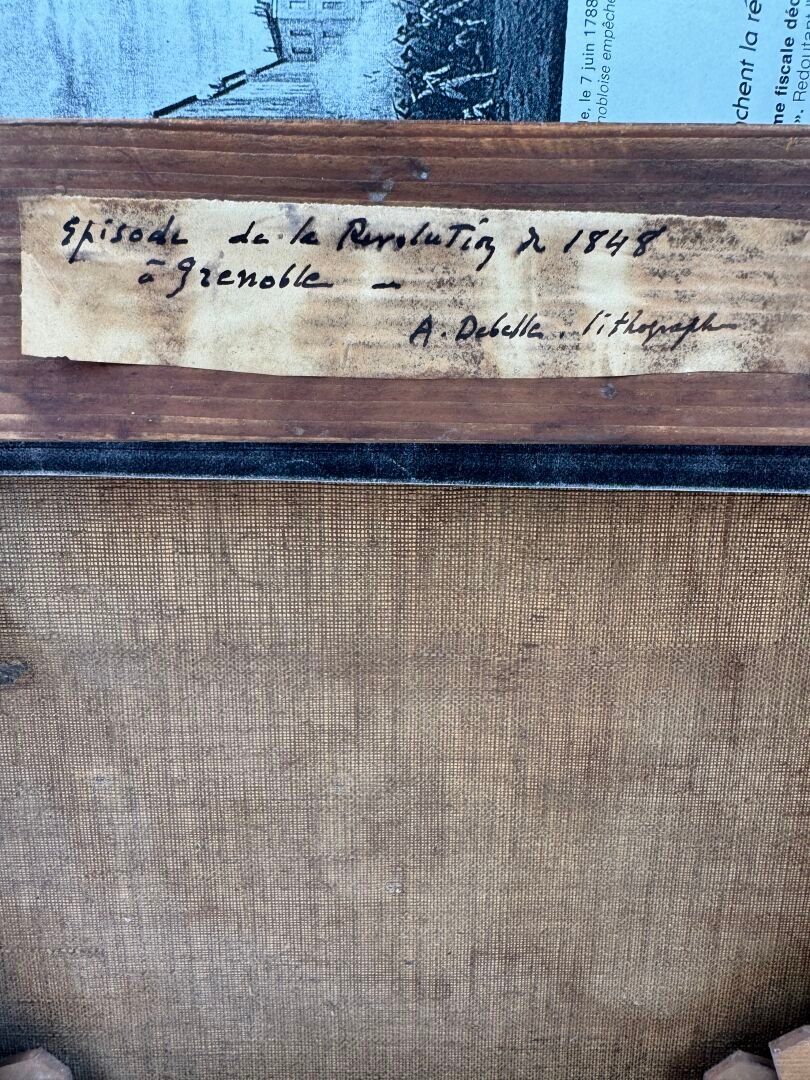 Episode de la Revolution de 1848
à Grenoble –
A. Debelle. lithographe
le 7 juin 1788
nobloise empêche
chent la ré
me fiscale déc
». Redoutan